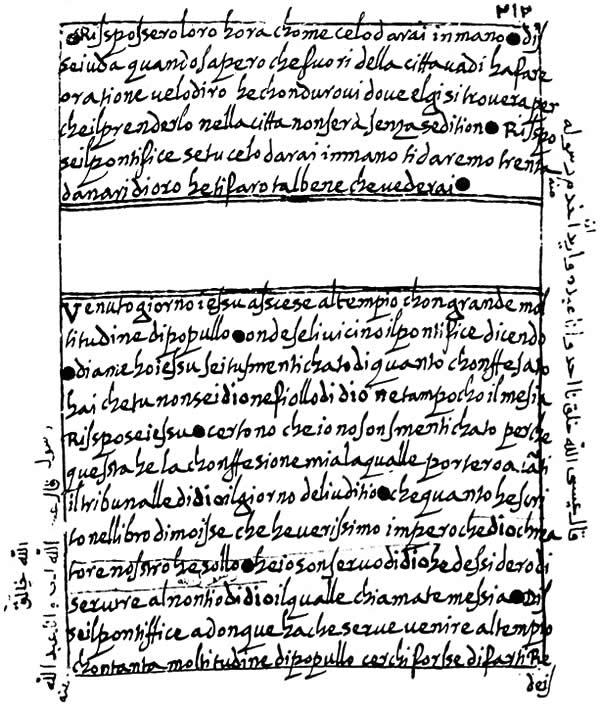 ٢١٢
Risspossero loro hora chome celo darai inmano ● dis
seiuda quando sapero che fuori della citta vadi ha fare
oratione velo diro he chondurovi dove elgi si trovera per
che il prenderlo nella citta non sera senza sedition ● Risspo
se il pontifice se tu celo darai inmano ti daremo trenta
danari di oro he ti faro tal bene che vederai ●
Venuto giorno iessu asscese al tempio chon grande mol
titudine di popullo ● onde seli vicino il pontifice dicendo
● dianie ho iessu sei tu smentichato di quanto chonffesato
hai che tu non sei dio ne fiollo di dio ne tampocho il mesia
Risspose iessu ● certo no che io no son smentichato perche
questa he la chonffesione mia la qualle portero a iāti
il tribunalle di dio il giorno de liuditio ● che quanto he scri
to nel libro di moisse che he verissimo impero che dio chrea
tore nostro he sollo ● he io son servo di dio he dessidero di
servire al nontio di dio il qualle chiamate messia ● Dis
se il pontiffice adonque ha che serve venire al tempio
chon tanta moltitudine di popullo cerchi forse di farti Re
deis
قال عيسى الله خلقنا احد وانا عبده واريد اخدم رسوله
منه
الله احد و انا عبد الله
الله خلق